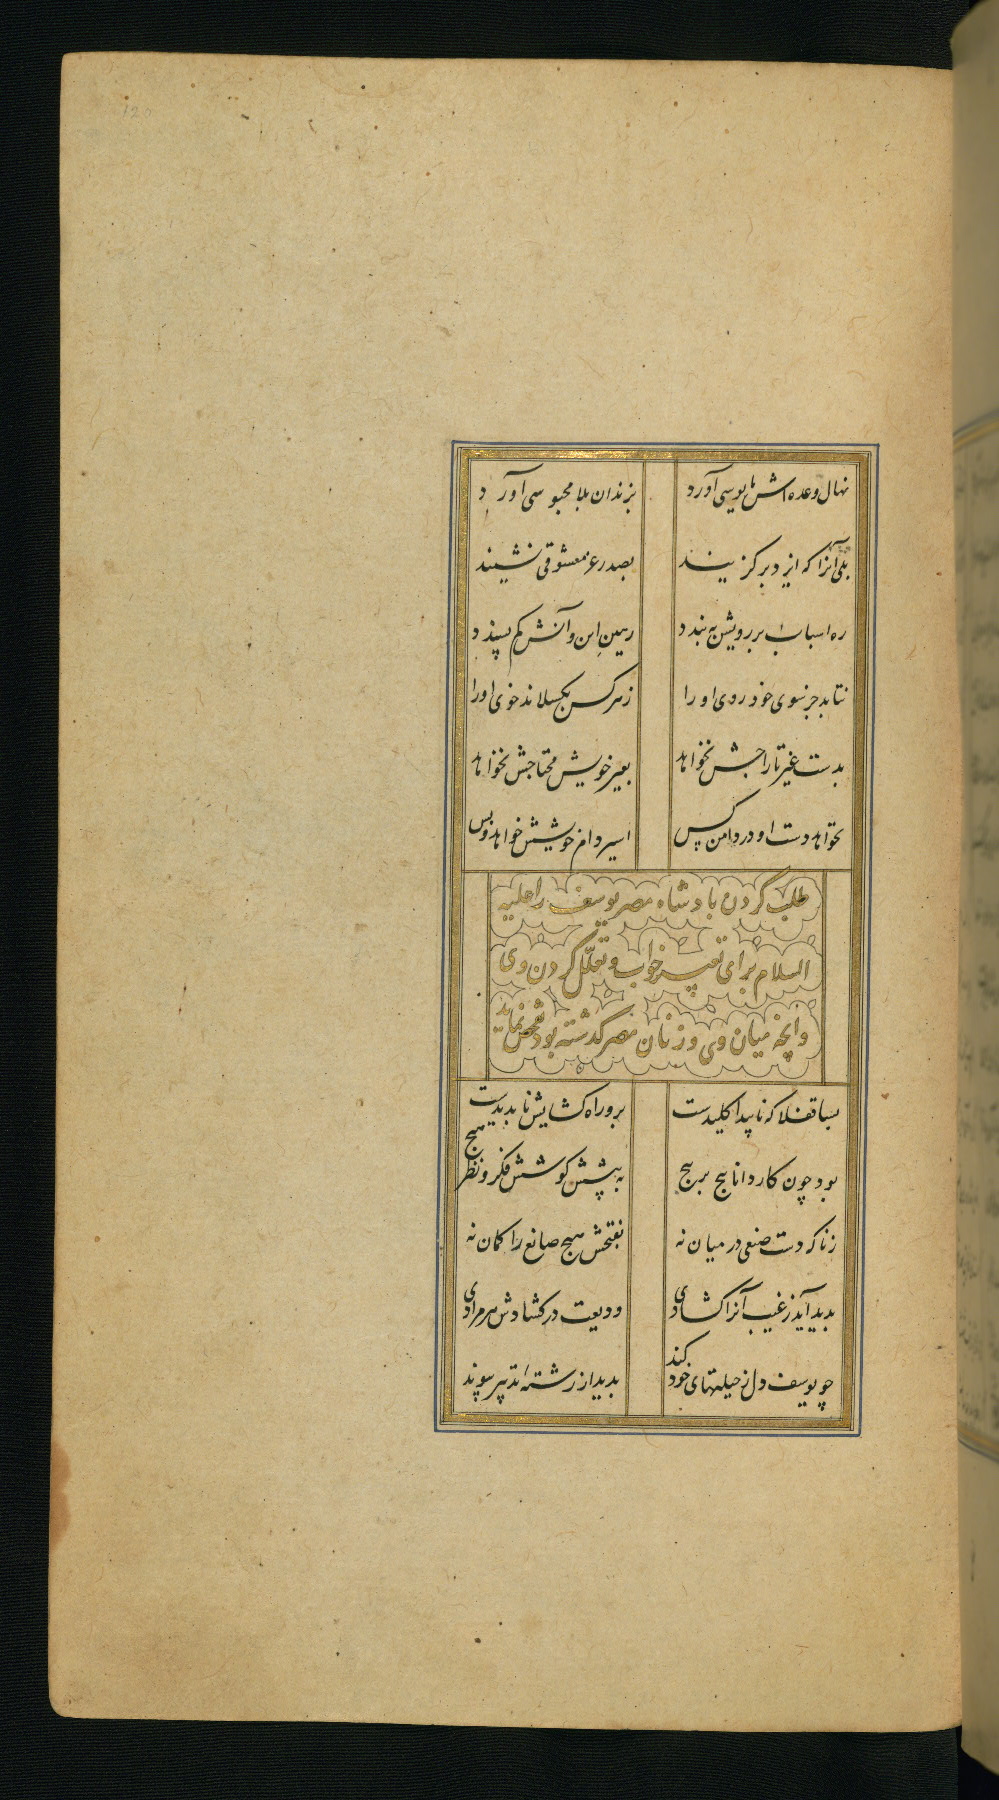 نهال وعده اش مایوسی آورد
بزندان بلا محبوسی آورد
بلی آنرا که ایزد برگزیند
بصدر عز معشوقی نشیند
ره اسباب بر رویش به بندد
رهین این و آنش کم پسندد
نتابد جز بسوی خود روی او را
ز هر کس بگسلاند خوی او را
بدست غیر تاراجش نخواهد
بغیر خویش محتاجش نخواهد
نخواهد دست او در دامن کس
اسیر دام خویشش خواهد و بس
طلب کردن بادشاه مصر یوسف را علیه
السلام برای تعبیر خواب و تعلّل کردن وی
وانچه میان وی و زنان مصر گذشته بود تفحص نماید
بسا قفلا که ناپیدا کلیدست
برو راه گشایش ناپدیدست
بود چون کار دانا پیچ بر پیچ
به پیشش کوشش فکر و نظر هیچ
ز ناگه دست صنعی در میان نه
بفتحش هیچ صانع را گمان نه
پدید آید ز غیب آنرا گشادی
ودیعت در گشادش هر مرادی
چو یوسف دل ز حیلتهای خود کند
برید از رشته تدبیر پیوند